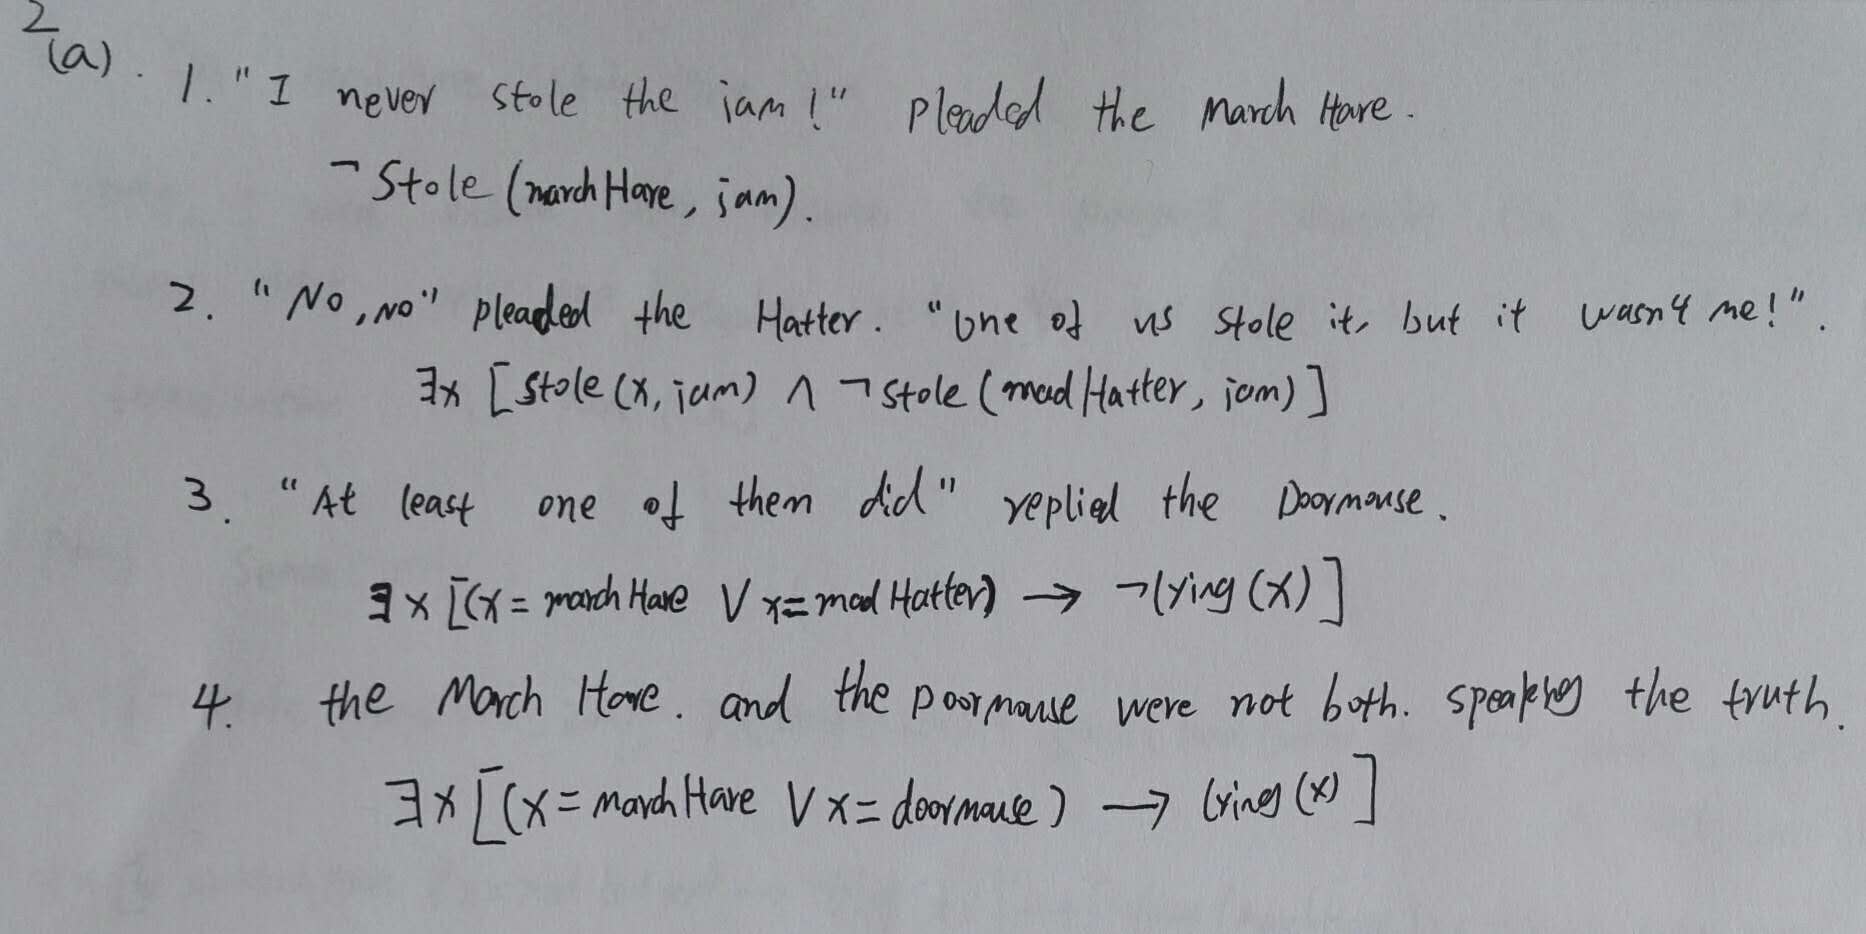 2
(a).
1. "I never stole the jam!" pleaded the March Hare.
¬Stole (marchHare, jam).
2. "No, no" pleaded the Hatter. "one of us stole it, but it wasn't me!".
∃x [stole (x, jam) ∧ ¬stole (madHatter, jam)]
3. "At least one of them did" replied the Doormouse.
∃x [(x = marchHare ∨ x = madHatter) → ¬lying (x)]
4. the March Hare. and the Doormouse were not both. speaking the truth.
∃x [(x = marchHare ∨ x = doormouse) → lying (x)]